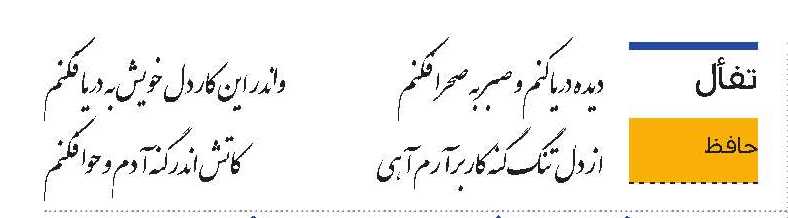 تفأل
حافظ
دیده دریا کنم و صبر به صحرا فکنم
واندر این کار دل خویش به دریا فکنم
از دل تنگ گنه کار برآرم آهی
کاتش اندر گنه آدم و حوا فکنم